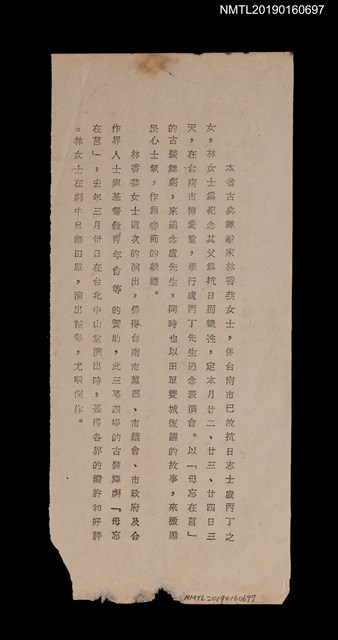 NMTL20190160697
本省古典舞蹈家林香芸女士，係台南市已故抗日志士盧丙丁之
女，林女士爲紀念其父爲抗日而犧牲，定本月廿二、廿三、廿四日三
天，在台南市博愛堂，舉行盧丙丁先生追念表演會。以「毋忘在莒」
的古裝舞劇，來追念盧先生，同時也以田單復城復國的故事，來激勵
民心士氣，作爲春節的獻禮。
林香芸女士這次的演出，係得台南市黨部、市議會、市政府及合
作界人士與基督敎靑年會等的贊助，此三幕四場的古裝舞劇「毋忘
在莒」，去年三月廿日在台北中山堂演出時，甚得各界的讚許和好評
。林女士在劇中且飾田單，演出精彩，尤稱傑作。
NMTL20190160697